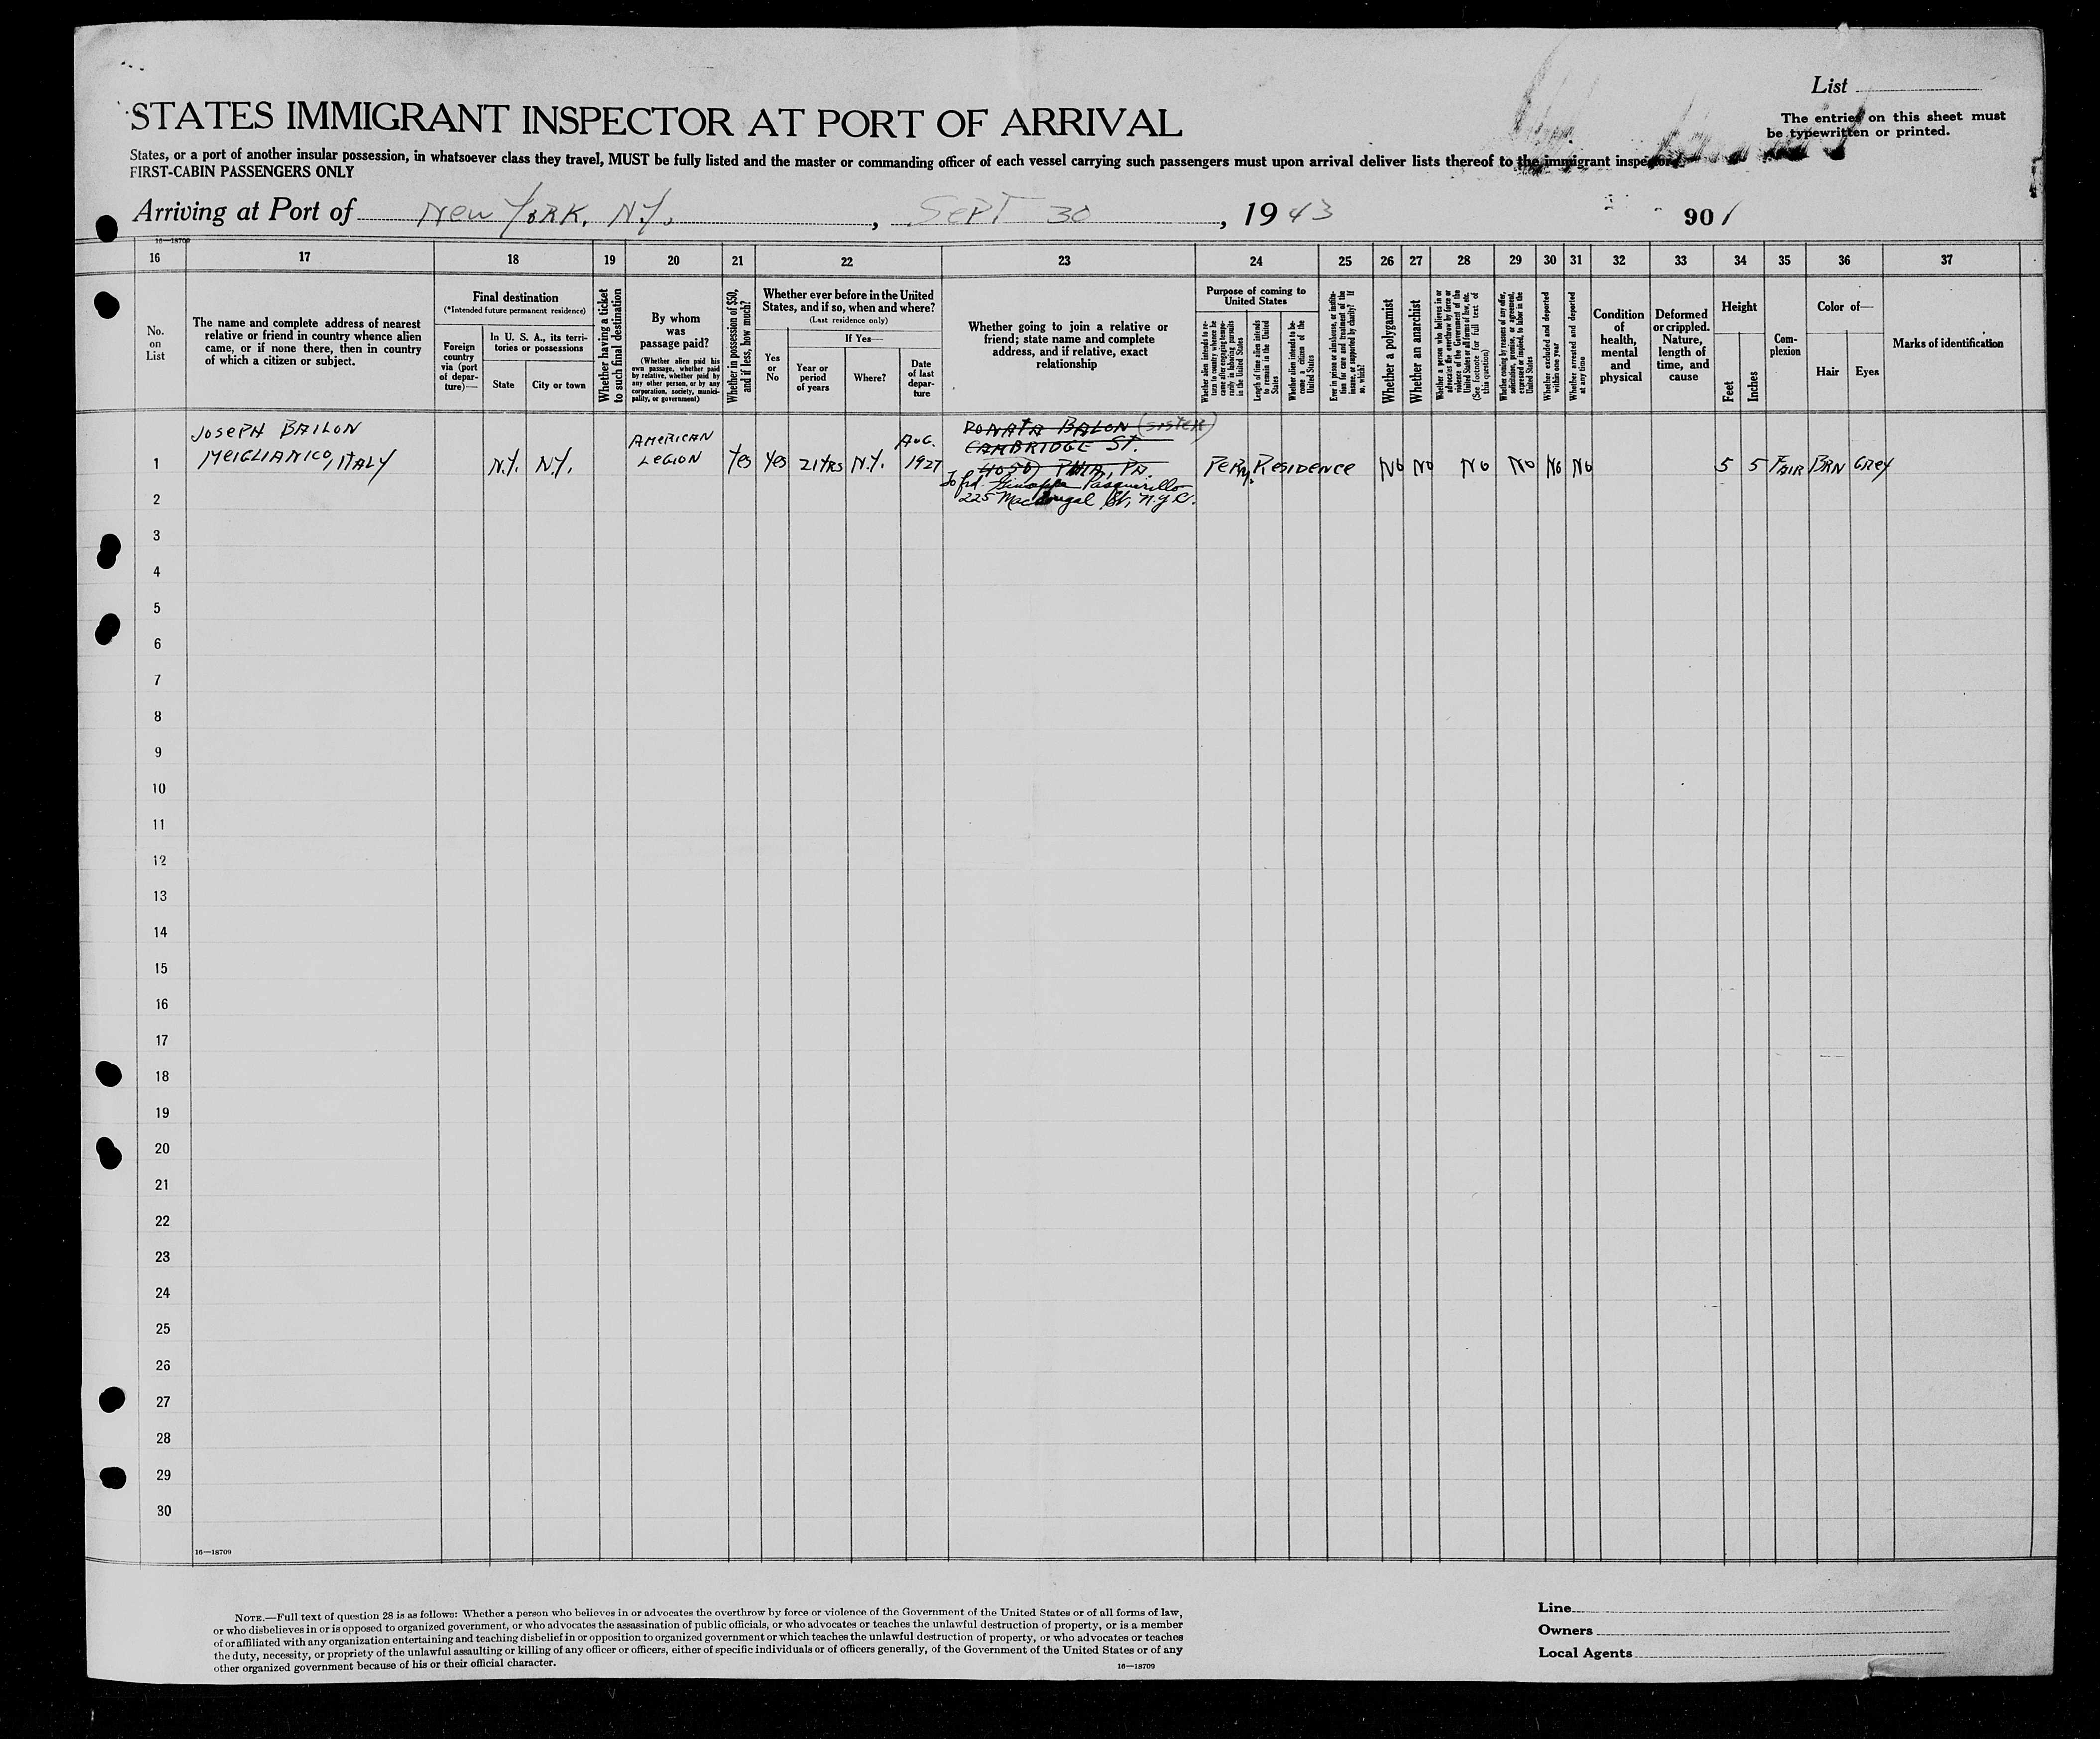 List
The entries on this sheet must
be typewritten or printed.
STATES IMMIGRANT INSPECTOR AT PORT OF ARRIVAL
States, or a port of another insular possession, in whatsoever class they travel, MUST be fully listed and the master or commanding officer of each vessel carrying such passengers must upon arrival deliver lists thereof to the immigrant inspector.
FIRST-CABIN PASSENGERS ONLY
Arriving at Port of New York, N.Y., Sept 30, 1943
901
16—18709
16 17 18 19 20 21 22 23 24 25 26 27 28 29 30 31 32 33 34 35 36 37
No.
on
List
The name and complete address of nearest
relative or friend in country whence alien
came, or if none there, then in country
of which a citizen or subject.
Final destination
(*Intended future permanent residence)
Foreign
country
via (port
of depar-
ture)—
In U. S. A., its terri-
tories or possessions
State
City or town
Whether having a ticket
to such final destination
By whom
was
passage paid?
(Whether alien paid his
own passage, whether paid
by relative, whether paid by
any other person, or by any
corporation, society, munici-
pality, or government)
Whether in possession of $50,
and if less, how much?
Whether ever before in the United
States, and if so, when and where?
(Last residence only)
Yes
or
No
If Yes—
Year or
period
of years
Where?
Date
of last
depar-
ture
Whether going to join a relative or
friend; state name and complete
address, and if relative, exact
relationship
Purpose of coming to
United States
Whether alien intends to re-
turn to country whence he
came after engaging tempo-
rarily in laboring pursuits
in the United States
Length of time alien intends
to remain in the United
States
Whether alien intends to be-
come a citizen of the
United States
Ever in prison or almshouse, or institu-
tion for care and treatment of the
insane, or supported by charity? If
so, which?
Whether a polygamist
Whether an anarchist
Whether a person who believes in or
advocates the overthrow by force or
violence of the Government of the
United States or all forms of law, etc.
(See footnote for full text of
this question)
Whether coming by reasons of any offer,
solicitation, promise, or agreement,
expressed or implied, to labor in the
United States
Whether excluded and deported
within one year
Whether arrested and deported
at any time
Condition
of
health,
mental
and
physical
Deformed
or crippled.
Nature,
length of
time, and
cause
Height
Feet
Inches
Com-
plexion
Color of—
Hair
Eyes
Marks of identification
JOSEPH BAILON
MEIGLIANICO, ITALY
1
N.Y. N.Y.
AMERICAN
LEGION
Yes Yes 21 YRS N.Y.
AUG.
1927
DONATA BALON (SISTER)
CAMBRIDGE ST.
PHIA, PA.
To frd. Giuseppe Pasquirillo
225 Macdougal St, N.Y.C.
PERM. RESIDENCE No No No No No No 5 5 FAIR BRN GREY
2
3
4
5
6
7
8
9
10
11
12
13
14
15
16
17
18
19
20
21
22
23
24
25
26
27
28
29
30
16—18709
NOTE.—Full text of question 28 is as follows: Whether a person who believes in or advocates the overthrow by force or violence of the Government of the United States or of all forms of law,
or who disbelieves in or is opposed to organized government, or who advocates the assassination of public officials, or who advocates or teaches the unlawful destruction of property, or is a member
of or affiliated with any organization entertaining and teaching disbelief in or opposition to organized government or which teaches the unlawful destruction of property, or who advocates or teaches
the duty, necessity, or propriety of the unlawful assaulting or killing of any officer or officers, either of specific individuals or of officers generally, of the Government of the United States or of any
other organized government because of his or their official character.
16—18709
Line
Owners
Local Agents